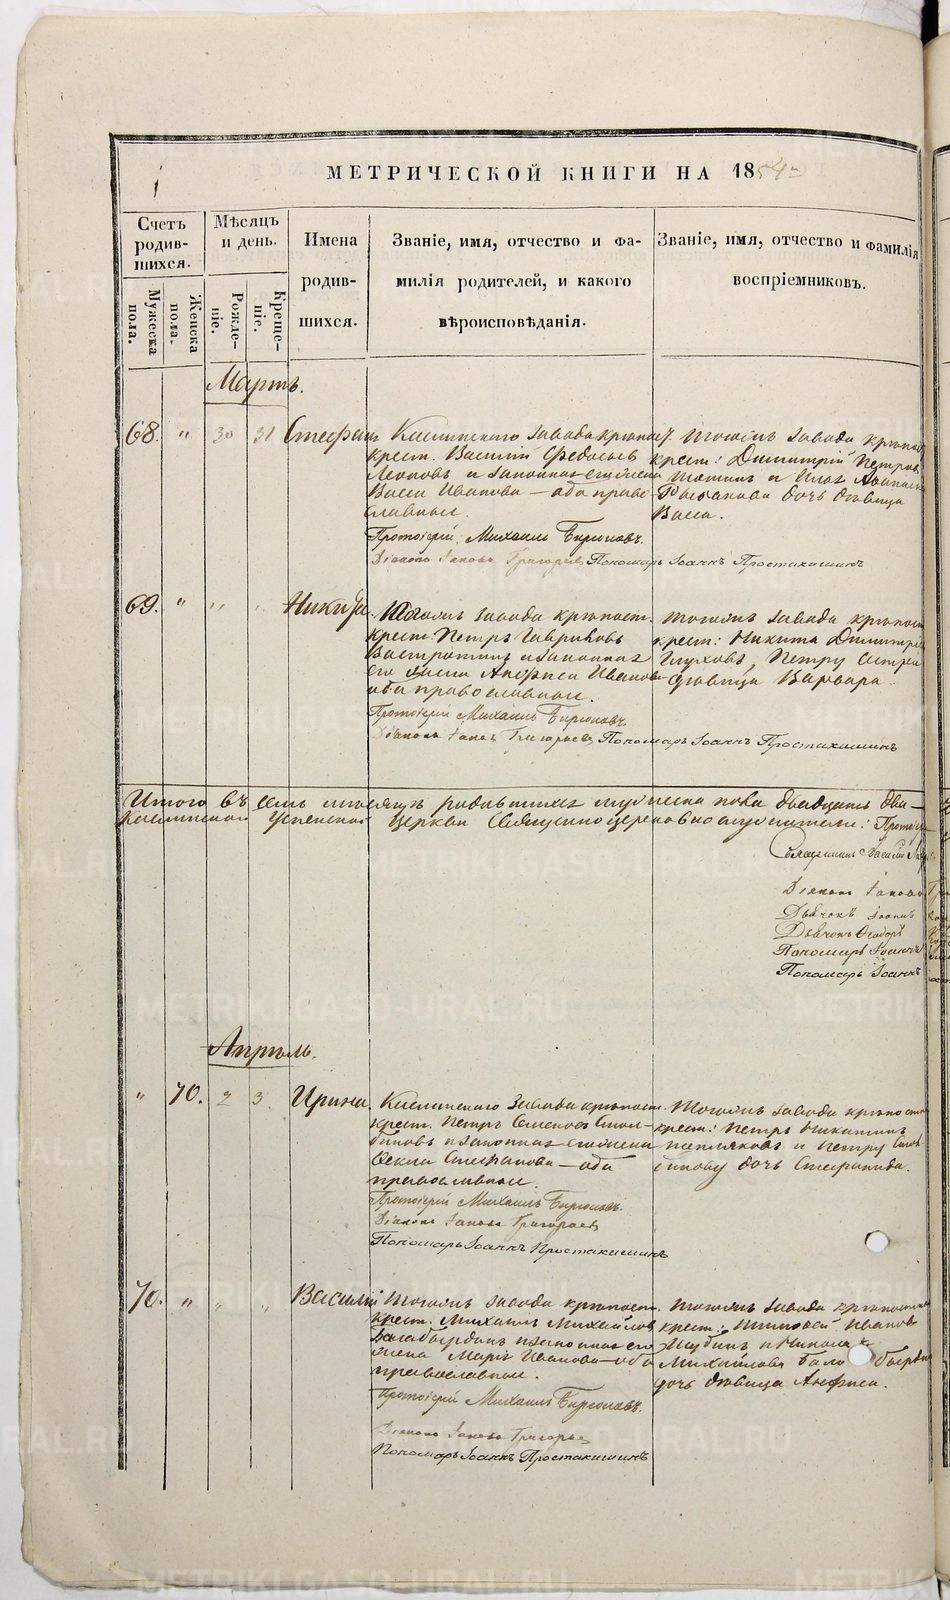 МЕТРИЧЕСКОЙ КНИГИ НА 1854
Счетъ родив-шихся.
Мужеска пола.
Женска пола.
Мѣсяцъ и день.
Рожде-ніе.
Креще-ніе.
Имена
родив-
шихся.
Званіе, имя, отчество и фа-
милія родителей, и какого
вѣроисповѣданія.
Званіе, имя, отчество и фамилія
воспріемниковъ.
Мартъ.
68. " 30 31 Стефанъ
Каслинскаго завода крѣпост.
крест. Василій Федосѣевъ
и законная его жена
Васса Иванова – оба право-
славные.
Протоіерей Михаилъ Бирюковъ.
Діаконъ Іаковъ Григорьевъ Пономарь Іоаннъ Простакишинъ
Тогожъ завода крѣпос
крест: Димитрій Петровъ
дочь дѣвица
Васса.
69. " " " Никита.
Тогожъ завода крѣпост.
крест. Петръ Гавриловъ
Востротинъ и законная
его жена Анфиса Иванова
оба православные.
Протоіерей Михаилъ Бирюковъ.
Діаконъ Іаковъ Григорьевъ Пономарь Іоаннъ Простакишинъ
Тогожъ завода крѣпост
крест: Никита Димитріе
Глуховъ, Петру
дѣвица Варвара.
Итого въ семъ мѣсяцѣ родившихся мужеска пола двадцать два
Каслинской Успенской Церкви Священноцерковнослужители: Протоіе
Священникъ Василій
Діаконъ Іаковъ
Дьячекъ Іоаннъ
Дьячекъ Ѳеодоръ
Пономарь Іоаннъ
Пономарь Іоаннъ
Апрѣль.
" 70. 2 3. Ирина.
Каслинскаго завода крѣпост.
крест. Петръ Семеновъ Стол-
биковъ и законная его жена
Ѳекла Стефанова – оба
православные.
Протоіерей Михаилъ Бирюковъ.
Діаконъ Іаковъ Григорьевъ
Пономарь Іоаннъ Простакишинъ
Тогожъ завода крѣпостн
крест: Петръ Никитинъ
и Петру Стол-
бикову дочь Степанида.
70. " " " Василій
Тогожъ завода крѣпост.
крест. Михаилъ Михайловъ
Балабердинъ и законная его
жена Марія Иванова – оба
православные.
Протоіерей Михаилъ Бирюковъ.
Діаконъ Іаковъ Григорьевъ
Пономарь Іоаннъ Простакишинъ
Тогожъ завода крѣпостн
крест: Тимофей Ивановъ
Шубинъ и Никола
Михайлова Бала бердин
дочь дѣвица Анфиса.
METRIKI.GASO-URAL.RU